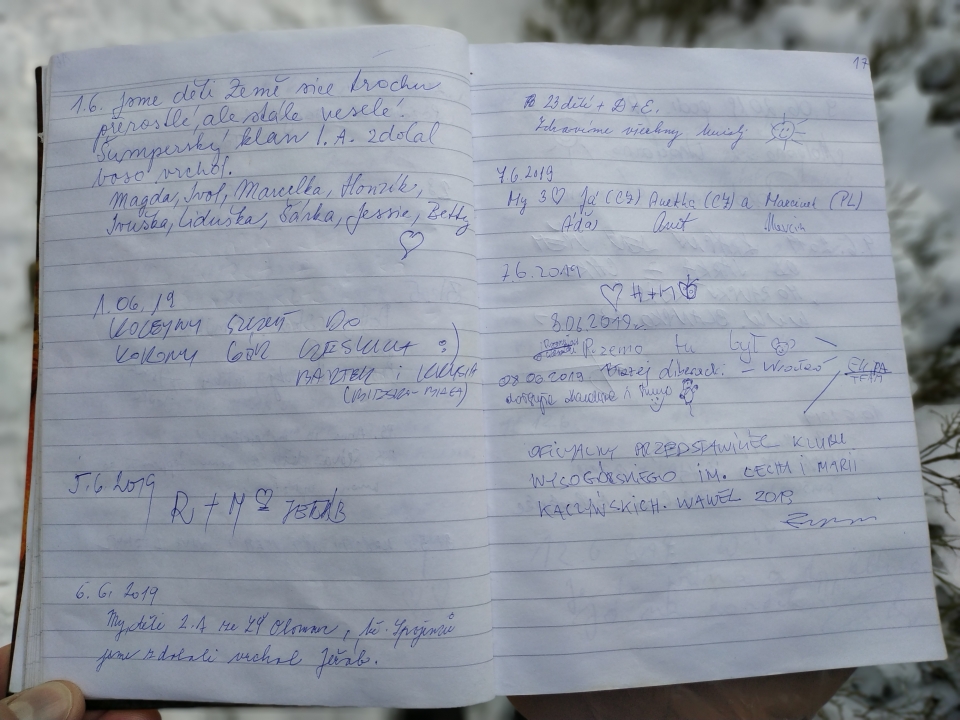 1.6. jsme děti Země sice trochu
přerostlé, ale stále veselé!
Šumperský klan 1. A. zdolal
boso vrchol.
Magda, Ivol, Marcelka, Honzík,
Ivuška, Liduška, Šárka, Jessie, Betty
1.06.19
KOLEJNY SZCZYT DO
KORONY GÓR CZESKICH :)
BARTEK i
(BIELSKO-BIAŁA)
5.6 2019
R + M JEŘÁB
6.6. 2019
My, děti 2.A ze ZŠ Olomouc,
jsme zdolali vrchol Jeřáb.
17
23 dětí + D+E.
Zdravíme všechny
7.6.2019
My 3 Já (CZ) Anetka (CZ) a Marcinek (PL)
Anet Marcin
7.6.2019
H+M
8.06.2019r.
Przemo tu był
08.06.2019 - Wrocław EKIPA
TEAM
OFICJALNY PRZEDSTAWICIEL KLUBU
WYSOGÓRSKIEGO IM. LECHA I MARII
KACZYŃSKICH. WAWEL 2019